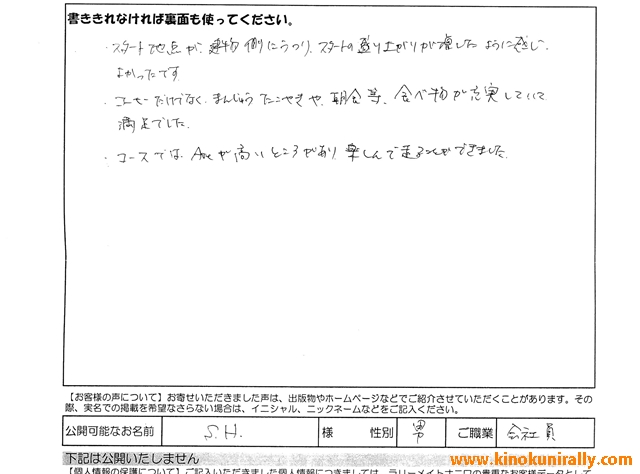 書ききれなければ裏面も使ってください。
・スタート地点が、建物側にうつり、スタートの盛り上がりが増したように感じ、
よかったです
・コーヒーだけでなく、まんじゅう、たこやきや、朝食等、食べ物が充実していて
満足でした。
・コースでは、Aveが高いところがあり、楽しんで走ることができました。
【お客様の声について】お寄せいただきました声は、出版物やホームページなどでご紹介させていただくことがあります。その
際、実名での掲載を希望なさらない場合は、イニシャル、ニックネームなどをご記入ください。
公開可能なお名前 S.H. 様 性別 男 ご職業 会社員
下記は公開いたしません
【個人情報の保護について】ご記入いただきました個人情報につきましては、ラリーメイトナニワの貴重なお客様データとして
www.kinokunirally.com